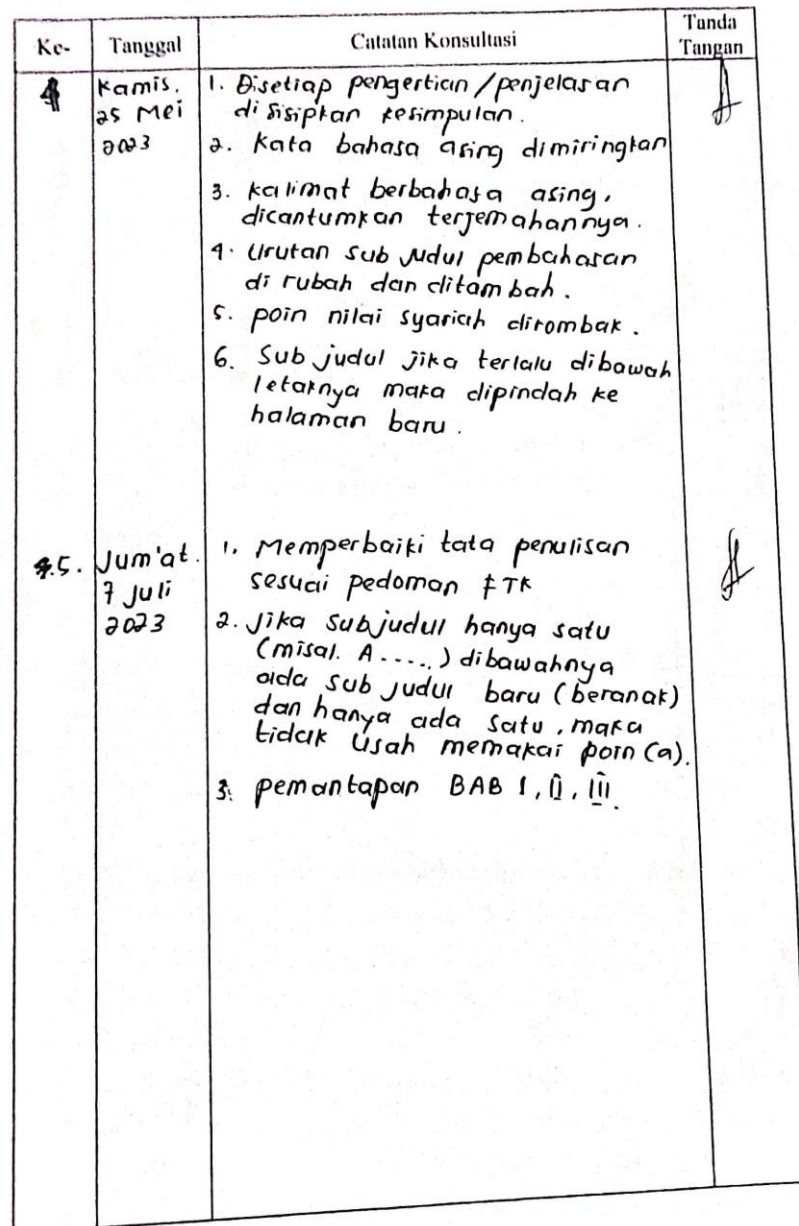 Ke- Tanggal Catatan Konsultasi Tanda Tangan
4 Kamis, 25 Mei 2023
1. Disetiap pengertian/penjelasan
disisipkan kesimpulan.
2. Kata bahasa asing dimiringkan
3. kalimat berbahasa asing,
dicantumkan terjemahannya.
4. Urutan sub judul pembahasan
di rubah dan ditambah.
5. poin nilai syariah dirombak.
6. Sub judul jika terlalu dibawah
letaknya maka dipindah ke
halaman baru.
5. Jum'at. 7 Juli 2023
1. Memperbaiki tata penulisan
sesuai pedoman FTK
2. Jika Subjudul hanya satu
(misal. A.....) dibawahnya
ada sub judul baru (beranak)
dan hanya ada satu, maka
tidak usah memakai poin (a).
3. pemantapan BAB I, II, III.